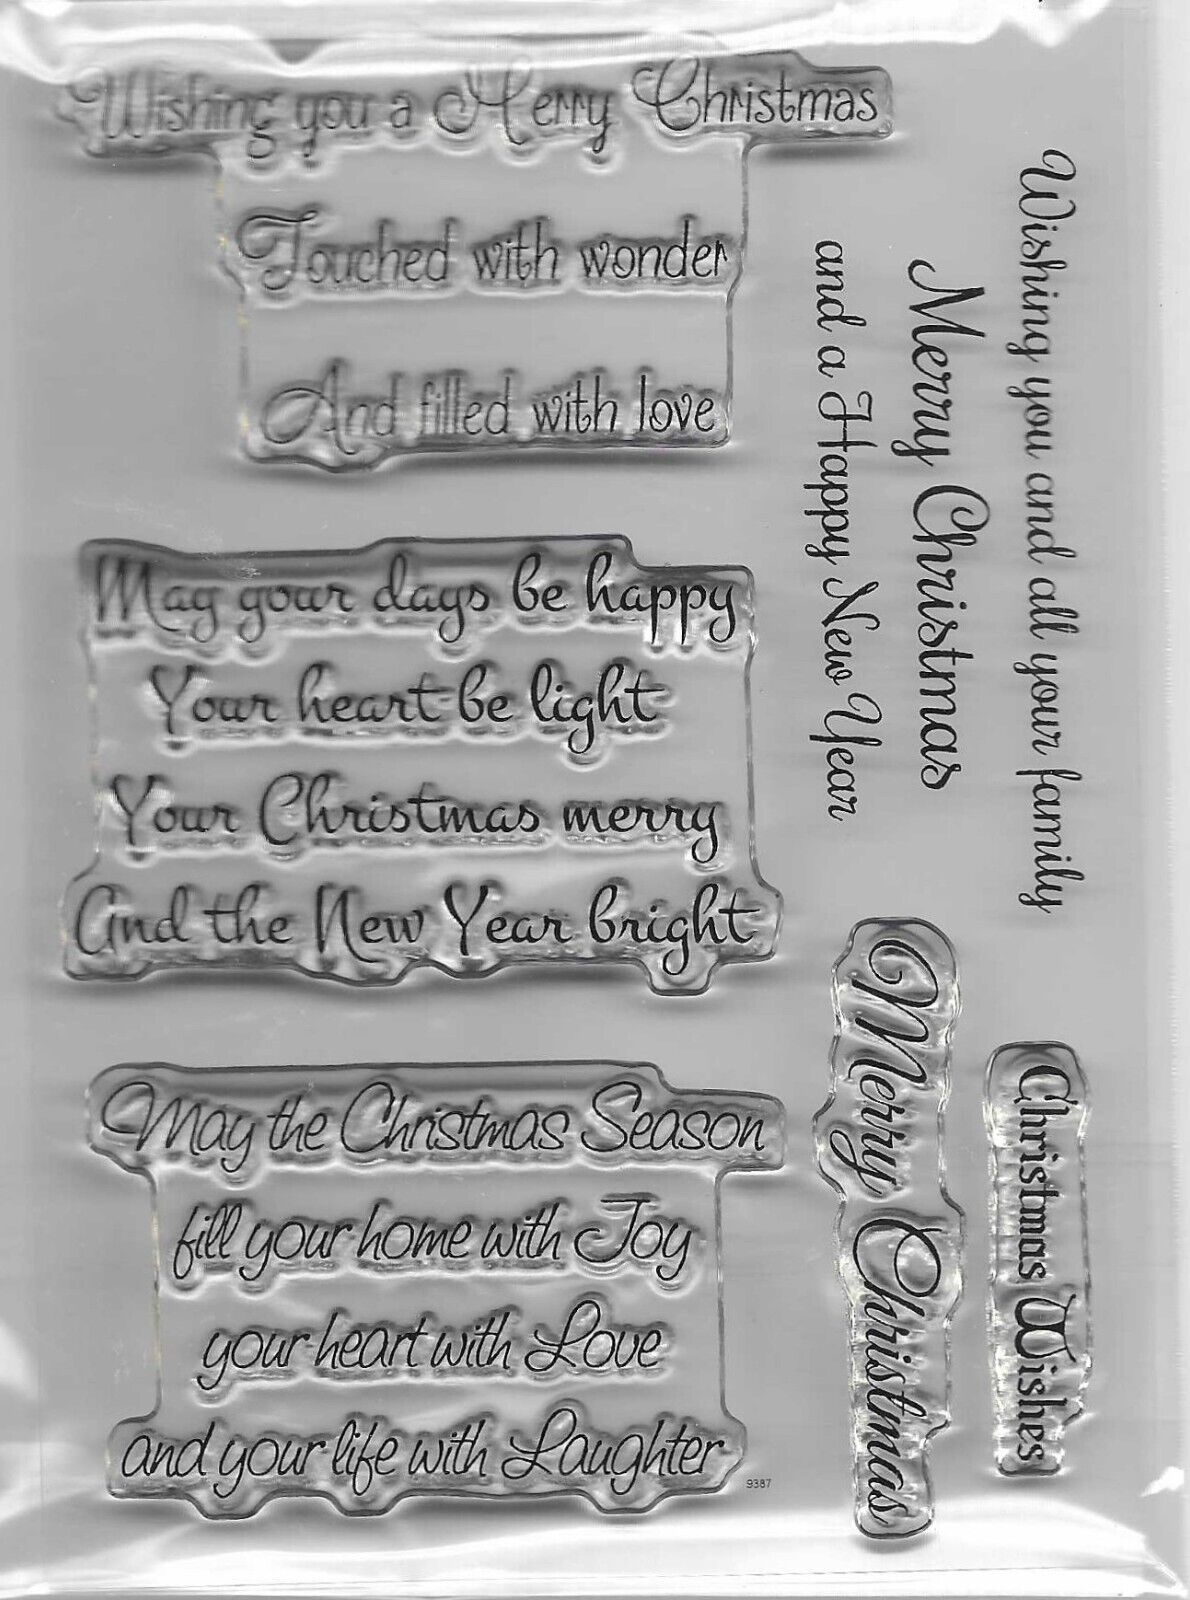 Wishing you a Merry Christmas
Touched with wonder
And filled with love
May your days be happy
Your heart be light
Your Christmas merry
and the New Year bright
May the Christmas Season
fill your home with Joy
your heart with Love
and your life with Laughter
9387
Wishing you and all your family
Merry Christmas
and a Happy New Year
Merry Christmas
Christmas Wishes